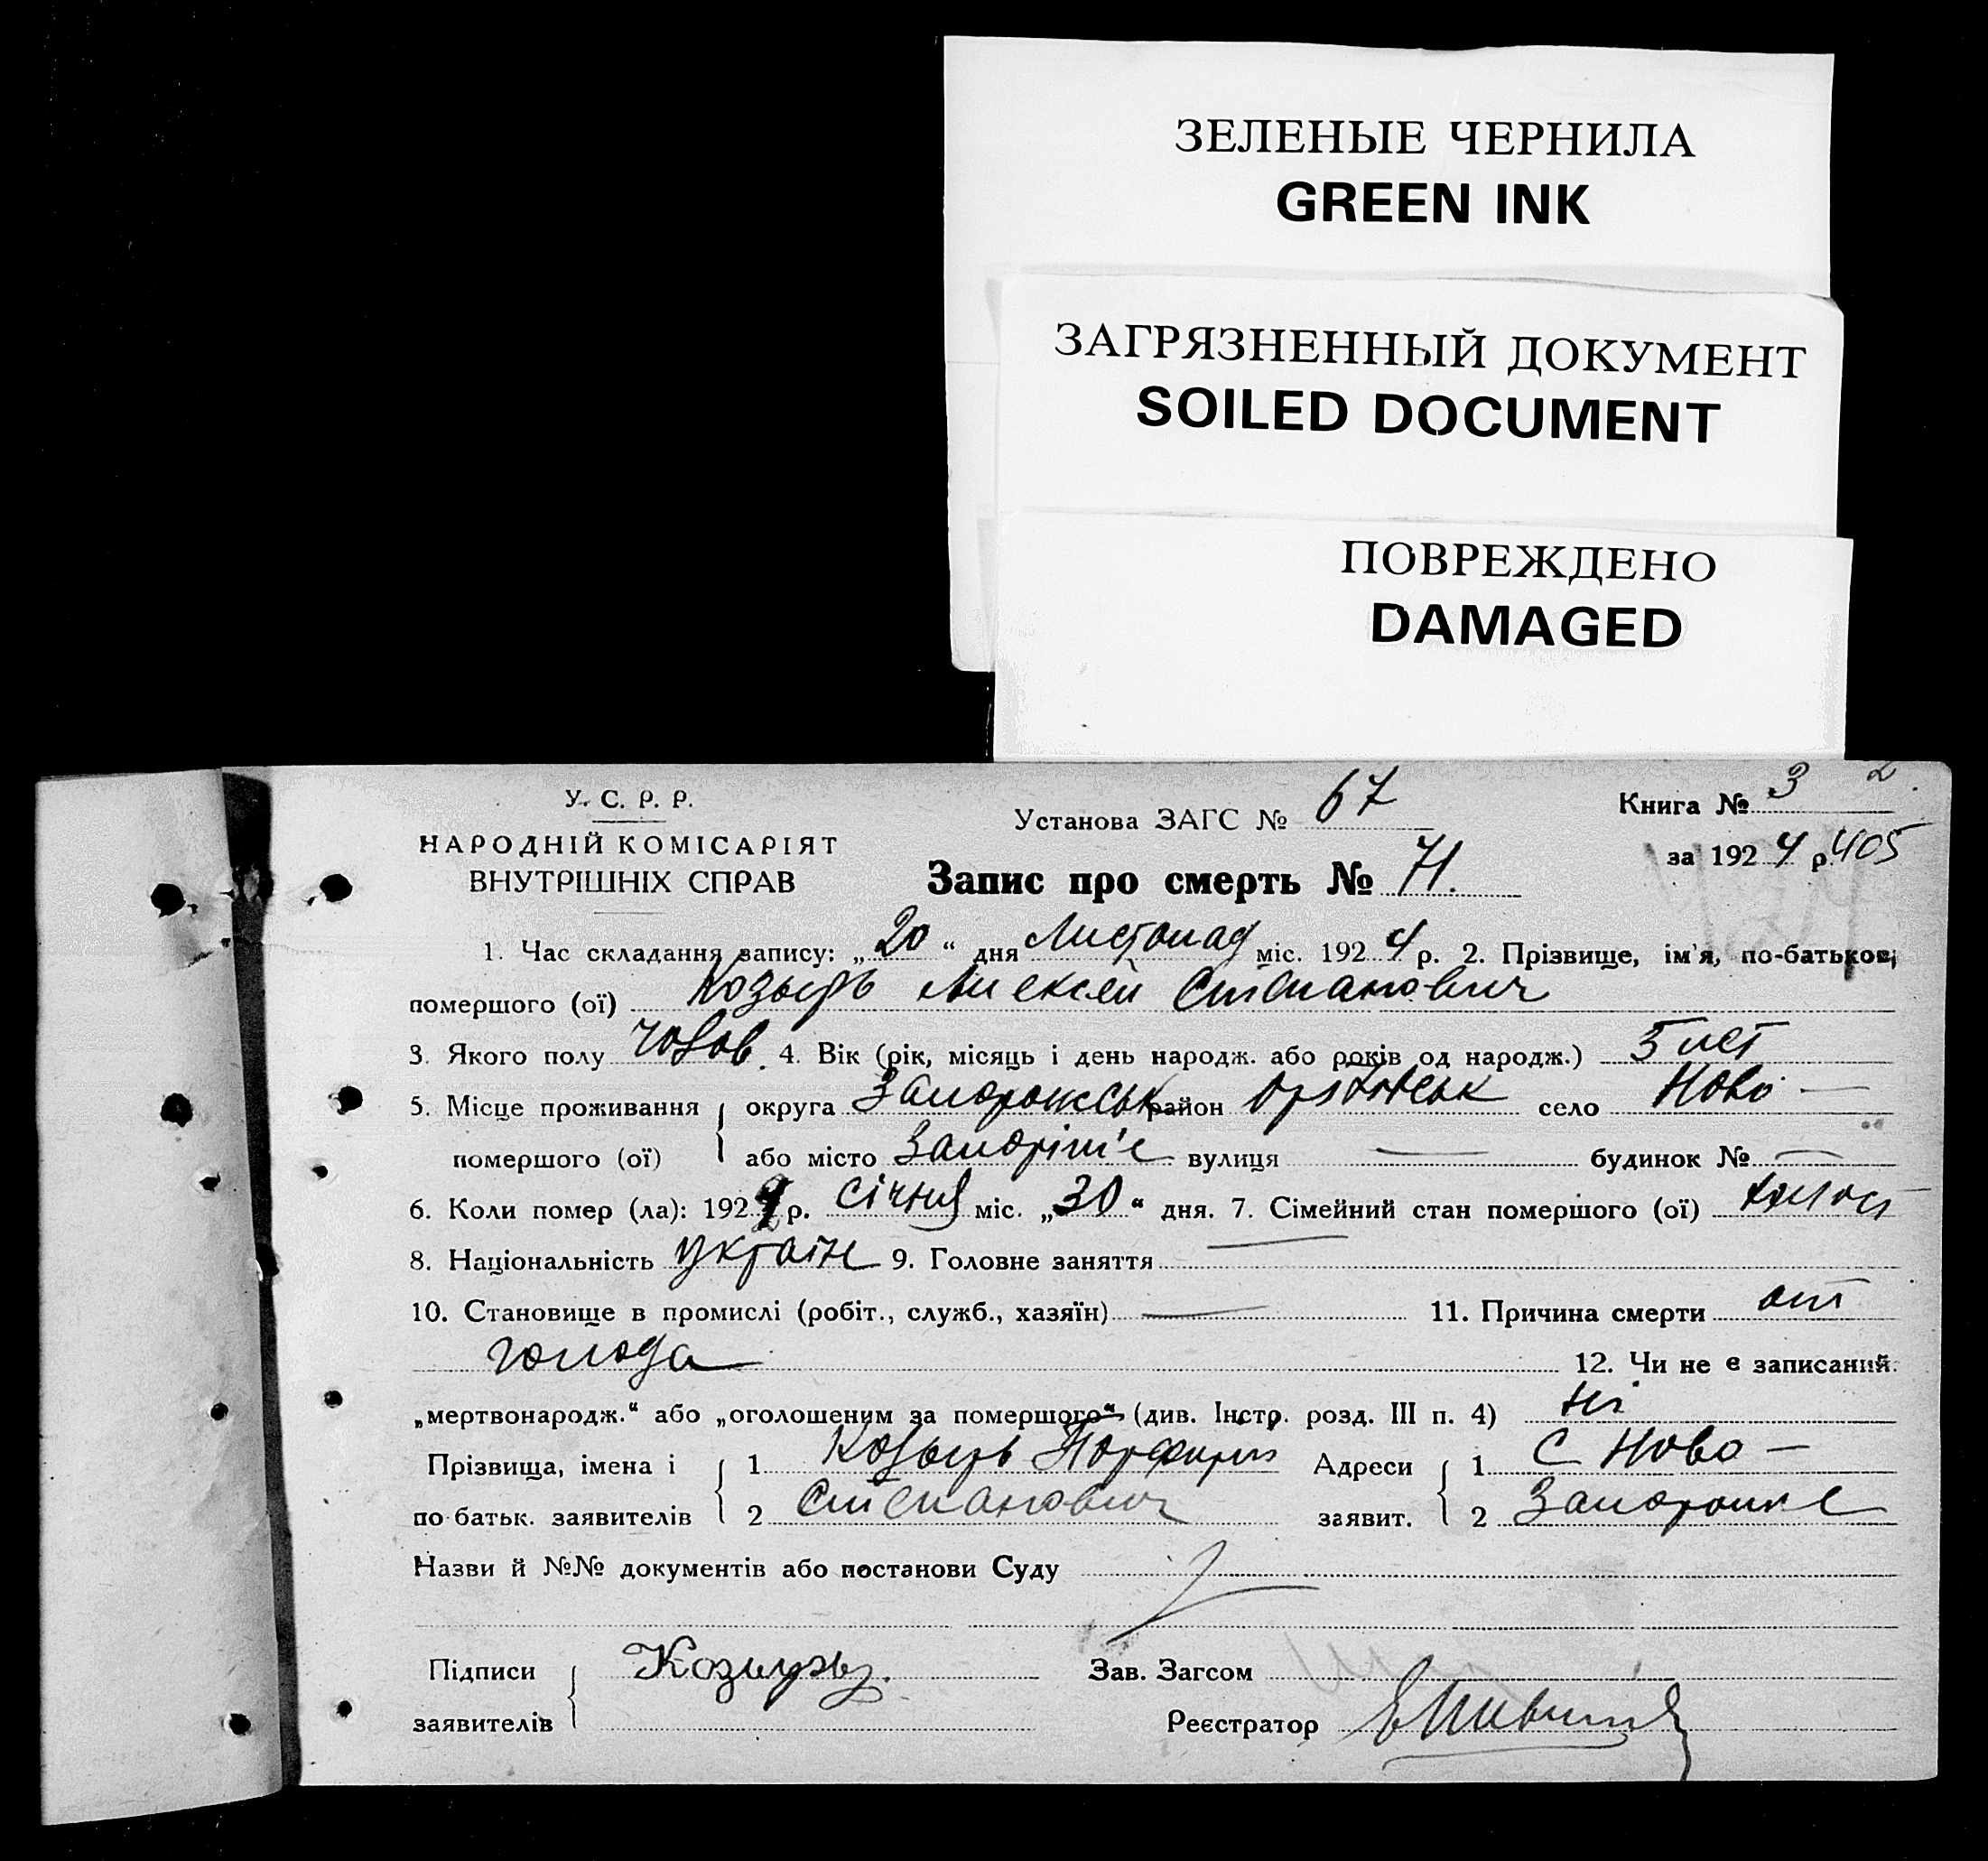 ЗЕЛЕНЫЕ ЧЕРНИЛА
GREEN INK
ЗАГРЯЗНЕННЫЙ ДОКУМЕНТ
SOILED DOCUMENT
ПОВРЕЖДЕНО
DAMAGED
У. С. Р. Р.
НАРОДНІЙ КОМІСАРІЯТ
ВНУТРІШНІХ СПРАВ
Установа ЗАГС № 67
Книга № 3 2
за 1924 р. 405
Запис про смерть № 71.
1. Час складання запису: „20“ дня Листопад міс. 1924 р. 2. Прізвище, ім'я, по-батькові
помершого (ої) Козырь Алексей Степанович
3. Якого полу чолов. 4. Вік (рік, місяць і день народж. або років од народж.) 5 лет
5. Місце проживання округа Запорожськ район село Ново —
помершого (ої) або місто Запоріж'е вулиця — будинок № —
6. Коли помер (ла): 192 р. січня міс. „30“ дня. 7. Сімейний стан помершого (ої) холост
8. Національність україн 9. Головне заняття —
10. Становище в промислі (робіт., служб., хазяїн) — 11. Причина смерти от
голода 12. Чи не є записаний
„мертвонародж.“ або „оголошеним за помершого“ (див. Інстр. розд. III п. 4) ні
Прізвища, імена і 1 Козырь Порфирий Адреси 1 С Ново —
по батьк. заявителів 2 Степанович заявит. 2 Запорожже
Назви й №№ документів або постанови Суду
Підписи Козырь Зав. Загсом
заявителів Реєстратор